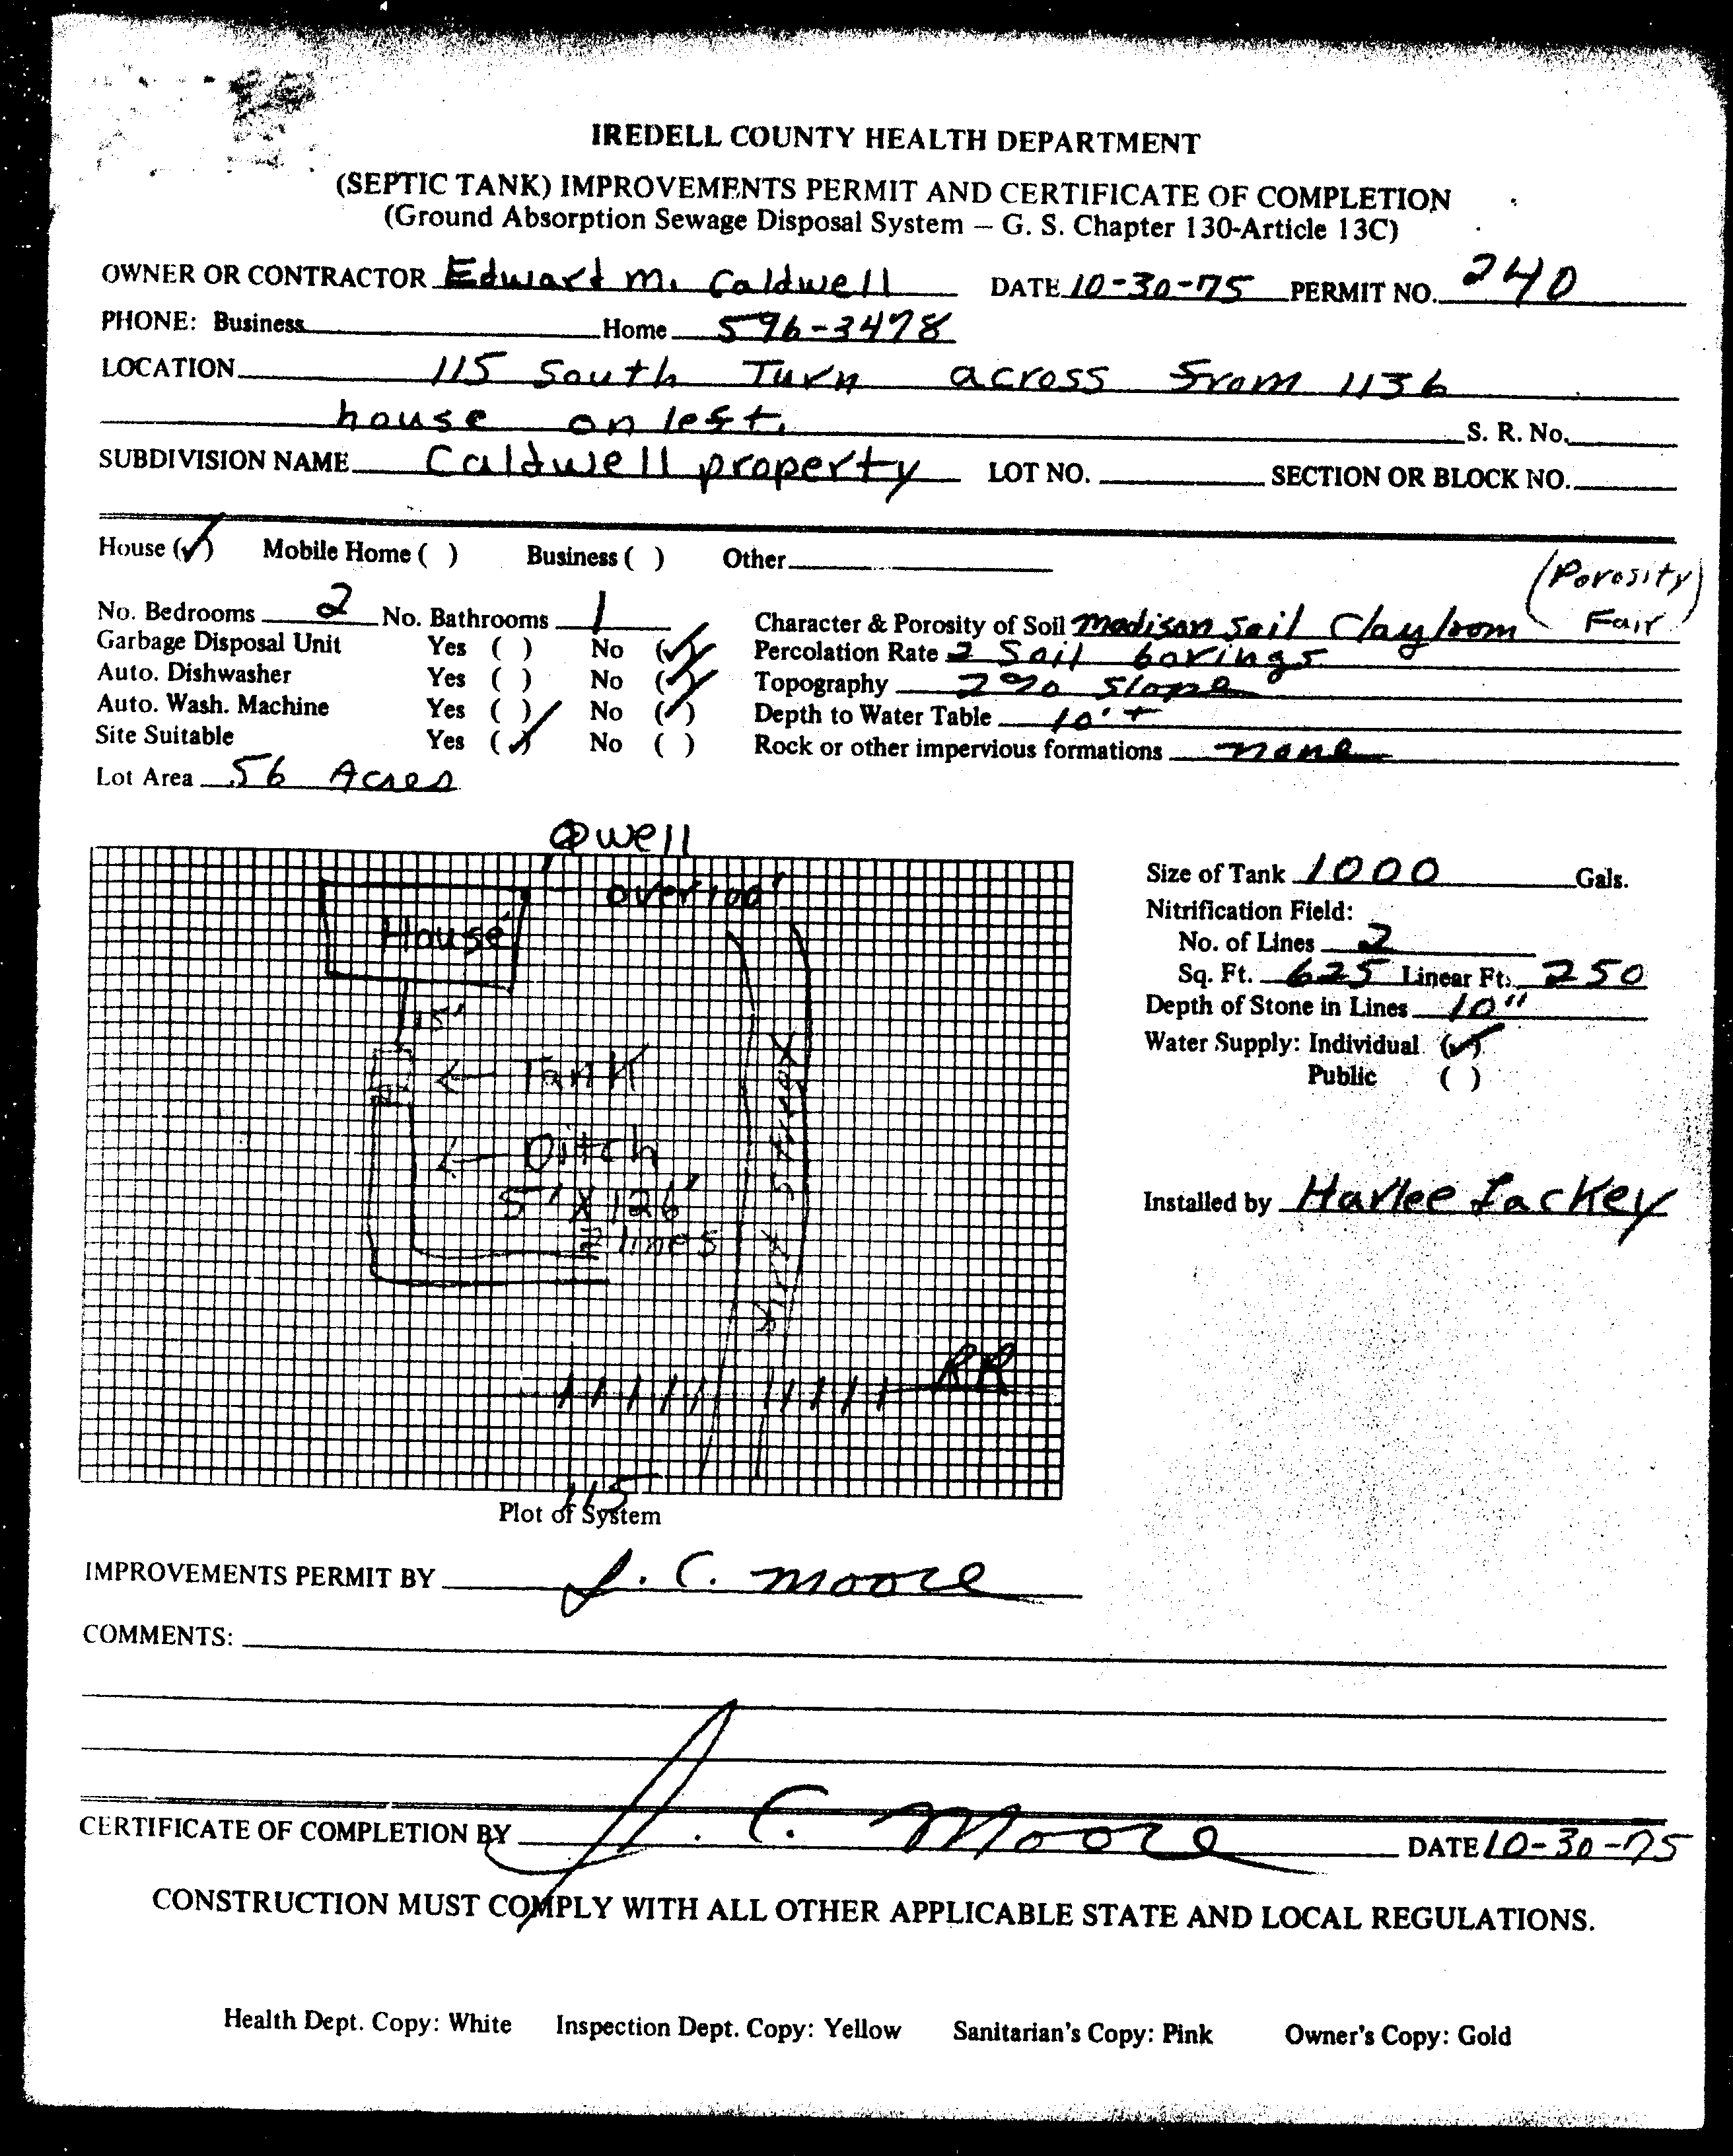 IREDELL COUNTY HEALTH DEPARTMENT
(SEPTIC TANK) IMPROVEMENTS PERMIT AND CERTIFICATE OF COMPLETION
(Ground Absorption Sewage Disposal System – G. S. Chapter 130-Article 13C)
OWNER OR CONTRACTOR Edward M. Caldwell DATE 10-30-75 PERMIT NO. 240
PHONE: Business Home 596-3478
LOCATION 115 South Turn across from 1136
house on left. S. R. No.
SUBDIVISION NAME Caldwell property LOT NO. SECTION OR BLOCK NO.
House (✓) Mobile Home ( ) Business ( ) Other
No. Bedrooms 2 No. Bathrooms 1
Garbage Disposal Unit Yes ( ) No (✓)
Auto. Dishwasher Yes ( ) No (✓)
Auto. Wash. Machine Yes ( ) No (✓)
Site Suitable Yes (✓) No ( )
Lot Area .56 Acres
Character & Porosity of Soil Madison Soil Clay loom (Porosity) Fair
Percolation Rate 2 Soil borings
Topography 2% Slope
Depth to Water Table 10' +
Rock or other impervious formations none
well
over 100'
House
15'
← Tank
← Ditch
5' X 126'
2 lines
RR
115
Plot of System
Size of Tank 1000 Gals.
Nitrification Field:
No. of Lines 2
Sq. Ft. 625 Linear Ft. 250
Depth of Stone in Lines 10"
Water Supply: Individual (✓)
Public ( )
Installed by Harlee Lackey
IMPROVEMENTS PERMIT BY J. C. Moore
COMMENTS:
CERTIFICATE OF COMPLETION BY J. C. Moore DATE 10-30-75
CONSTRUCTION MUST COMPLY WITH ALL OTHER APPLICABLE STATE AND LOCAL REGULATIONS.
Health Dept. Copy: White Inspection Dept. Copy: Yellow Sanitarian's Copy: Pink Owner's Copy: Gold